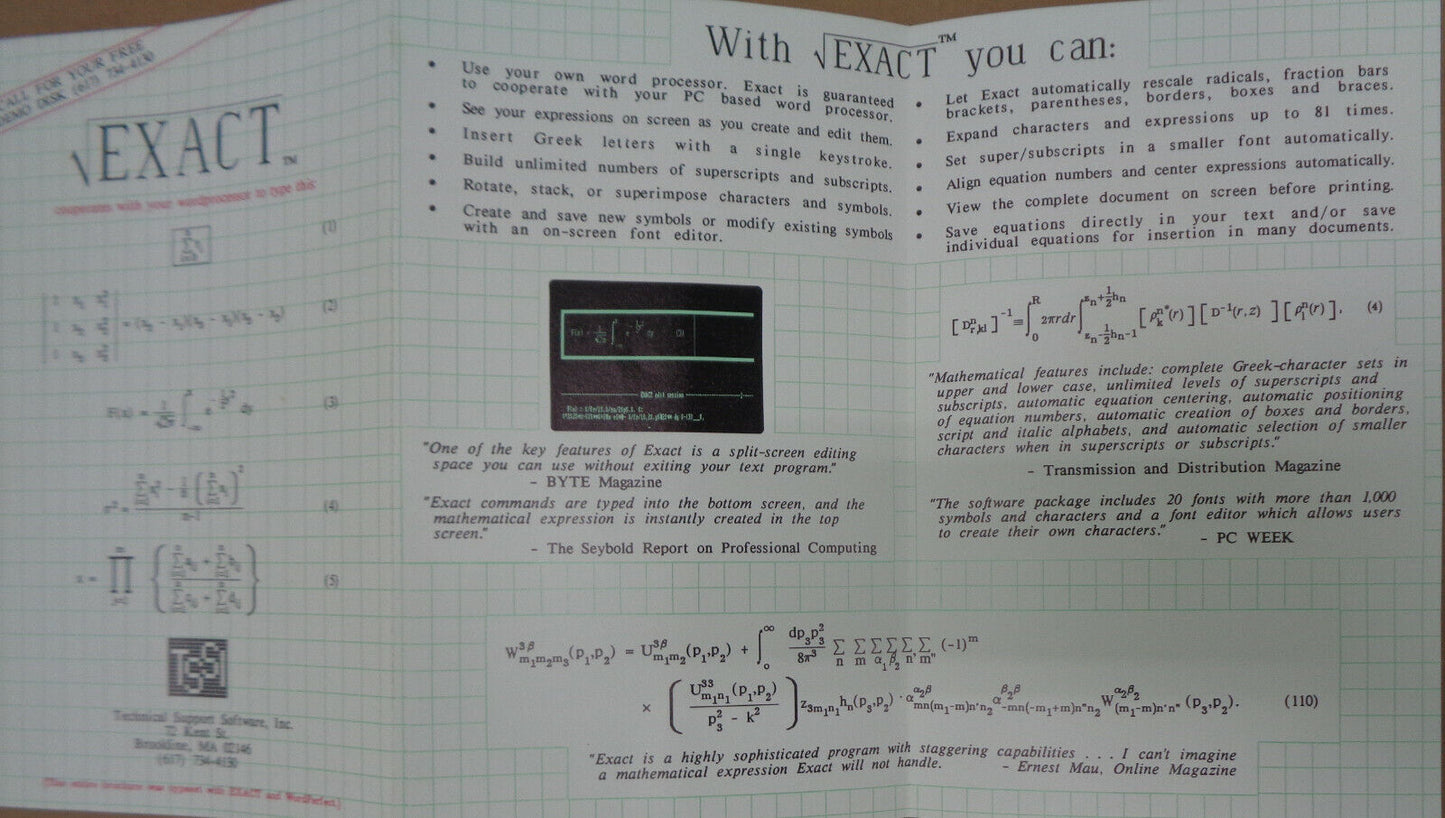 CALL FOR YOUR FREE
DEMO DISK (617) 734-4130
√EXACT™
cooperates with your wordprocessor to type this:
(1)
(2)
F(x) =
(3)
(4)
n-1
(5)
TSS
Technical Support Software, Inc.
72 Kent St.
Brookline, MA 02146
(617) 734-4130
(This entire brochure was typeset with EXACT and WordPerfect.)
With √EXACT™ you can:
• Use your own word processor. Exact is guaranteed
to cooperate with your PC based word processor.
• See your expressions on screen as you create and edit them.
• Insert Greek letters with a single keystroke.
• Build unlimited numbers of superscripts and subscripts.
• Rotate, stack, or superimpose characters and symbols.
• Create and save new symbols or modify existing symbols
with an on-screen font editor.
• Let Exact automatically rescale radicals, fraction bars
brackets, parentheses, borders, boxes and braces.
• Expand characters and expressions up to 81 times.
• Set super/subscripts in a smaller font automatically.
• Align equation numbers and center expressions automatically.
• View the complete document on screen before printing.
• Save equations directly in your text and/or save
individual equations for insertion in many documents.
EXACT edit session
"One of the key features of Exact is a split-screen editing
space you can use without exiting your text program."
- BYTE Magazine
"Exact commands are typed into the bottom screen, and the
mathematical expression is instantly created in the top
screen."
- The Seybold Report on Professional Computing
[D^n_r,kl]^-1 ≡ ∫_0^R 2πrdr ∫_{z_n-½h_n-1}^{z_n+½h_n} [ρ_k^n*(r)][D^-1(r,z)][ρ_l^n(r)], (4)
"Mathematical features include: complete Greek-character sets in
upper and lower case, unlimited levels of superscripts and
subscripts, automatic equation centering, automatic positioning
of equation numbers, automatic creation of boxes and borders,
script and italic alphabets, and automatic selection of smaller
characters when in superscripts or subscripts."
- Transmission and Distribution Magazine
"The software package includes 20 fonts with more than 1,000
symbols and characters and a font editor which allows users
to create their own characters."
- PC WEEK
W^3β_m1m2m3(p1,p2) = U^3β_m1m2(p1,p2) + ∫_o^∞ dp3p3^2/8π^3 Σ_n Σ_m Σ_α1 Σ_β2 Σ_n' Σ_m" (-1)^m
× (U^33_m1n1(p1,p2) / p3^2 - k^2) z_3m1n1 h_n(p3,p2) · α^α2β_mn(m1-m)n'n2 α^β2β_-mn(-m1+m)n"n2 W^α2β2_(m1-m)n'n" (p3,p2). (110)
"Exact is a highly sophisticated program with staggering capabilities . . . I can't imagine
a mathematical expression Exact will not handle. - Ernest Mau, Online Magazine